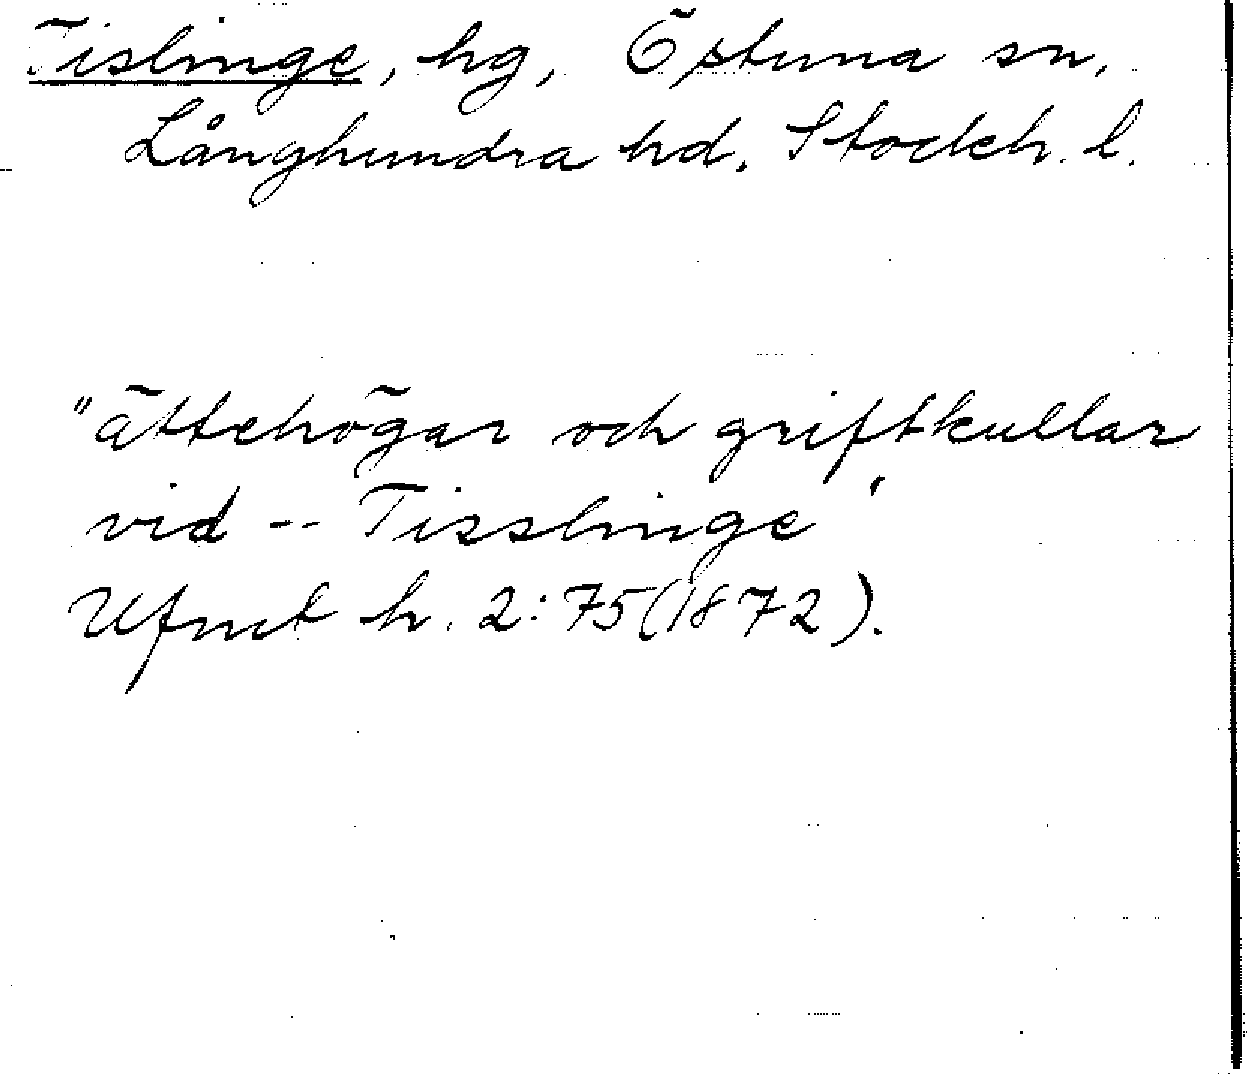 Tislinge, hg, Östuna sn,
Långhundra hd. Stockh. l.
"ättehögar och griftkullar
vid -- Tisslinge"
Ufmt h. 2:75(1872).